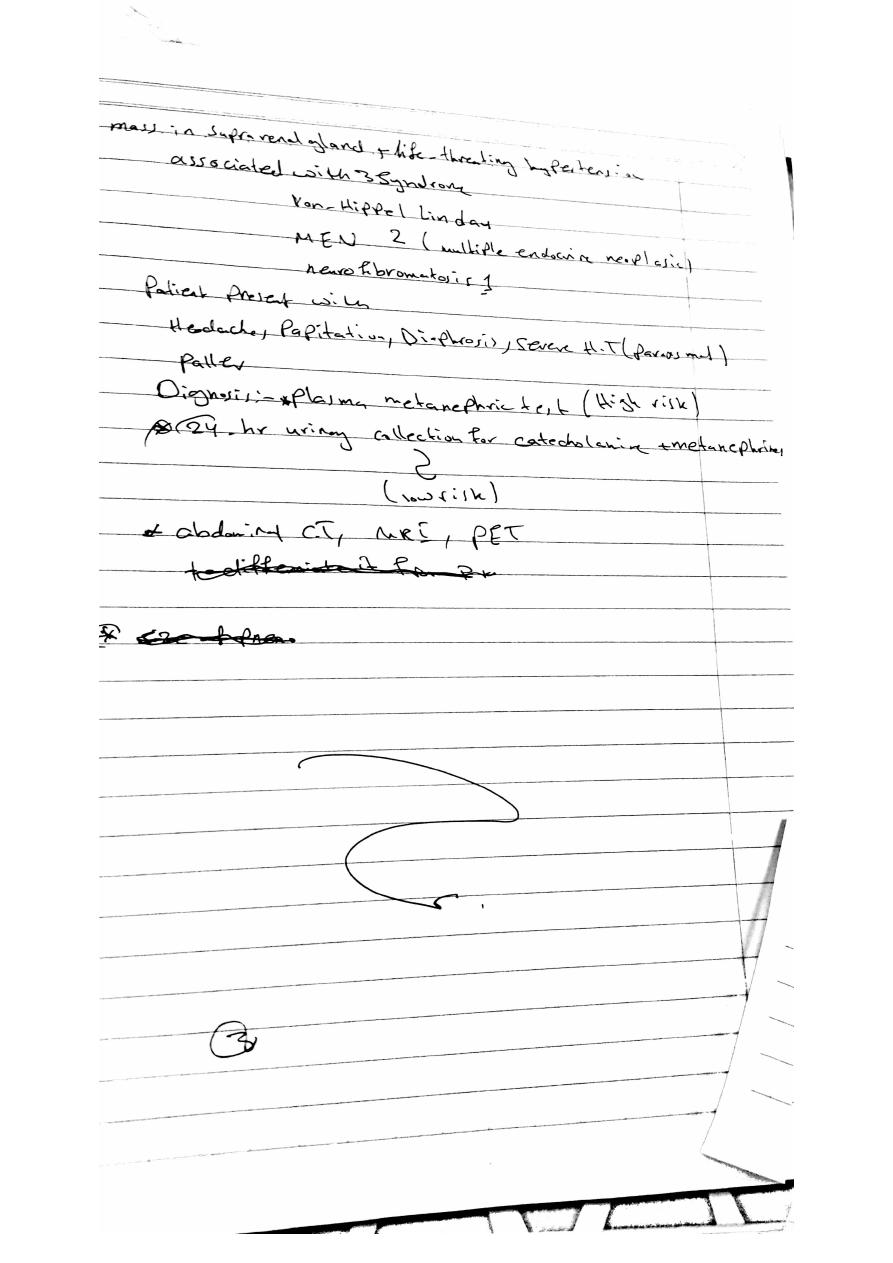 mass in suprarenal gland + life-threating hypertension
associated with 3 Syndrome
Von-Hippel Lindau
MEN 2 ( multiple endocrine neoplasic)
neurofibromatosis 1
Patient Present with
Headache, Papitation, Diaphrosis, severe H.T (paroxsmal)
Paller
Diagnosis:- *Plasma metanephric test (High risk)
24-hr urinay collection for catecholamine + metanephrines
(low risk)
* abdominal CT, MRI, PET
3